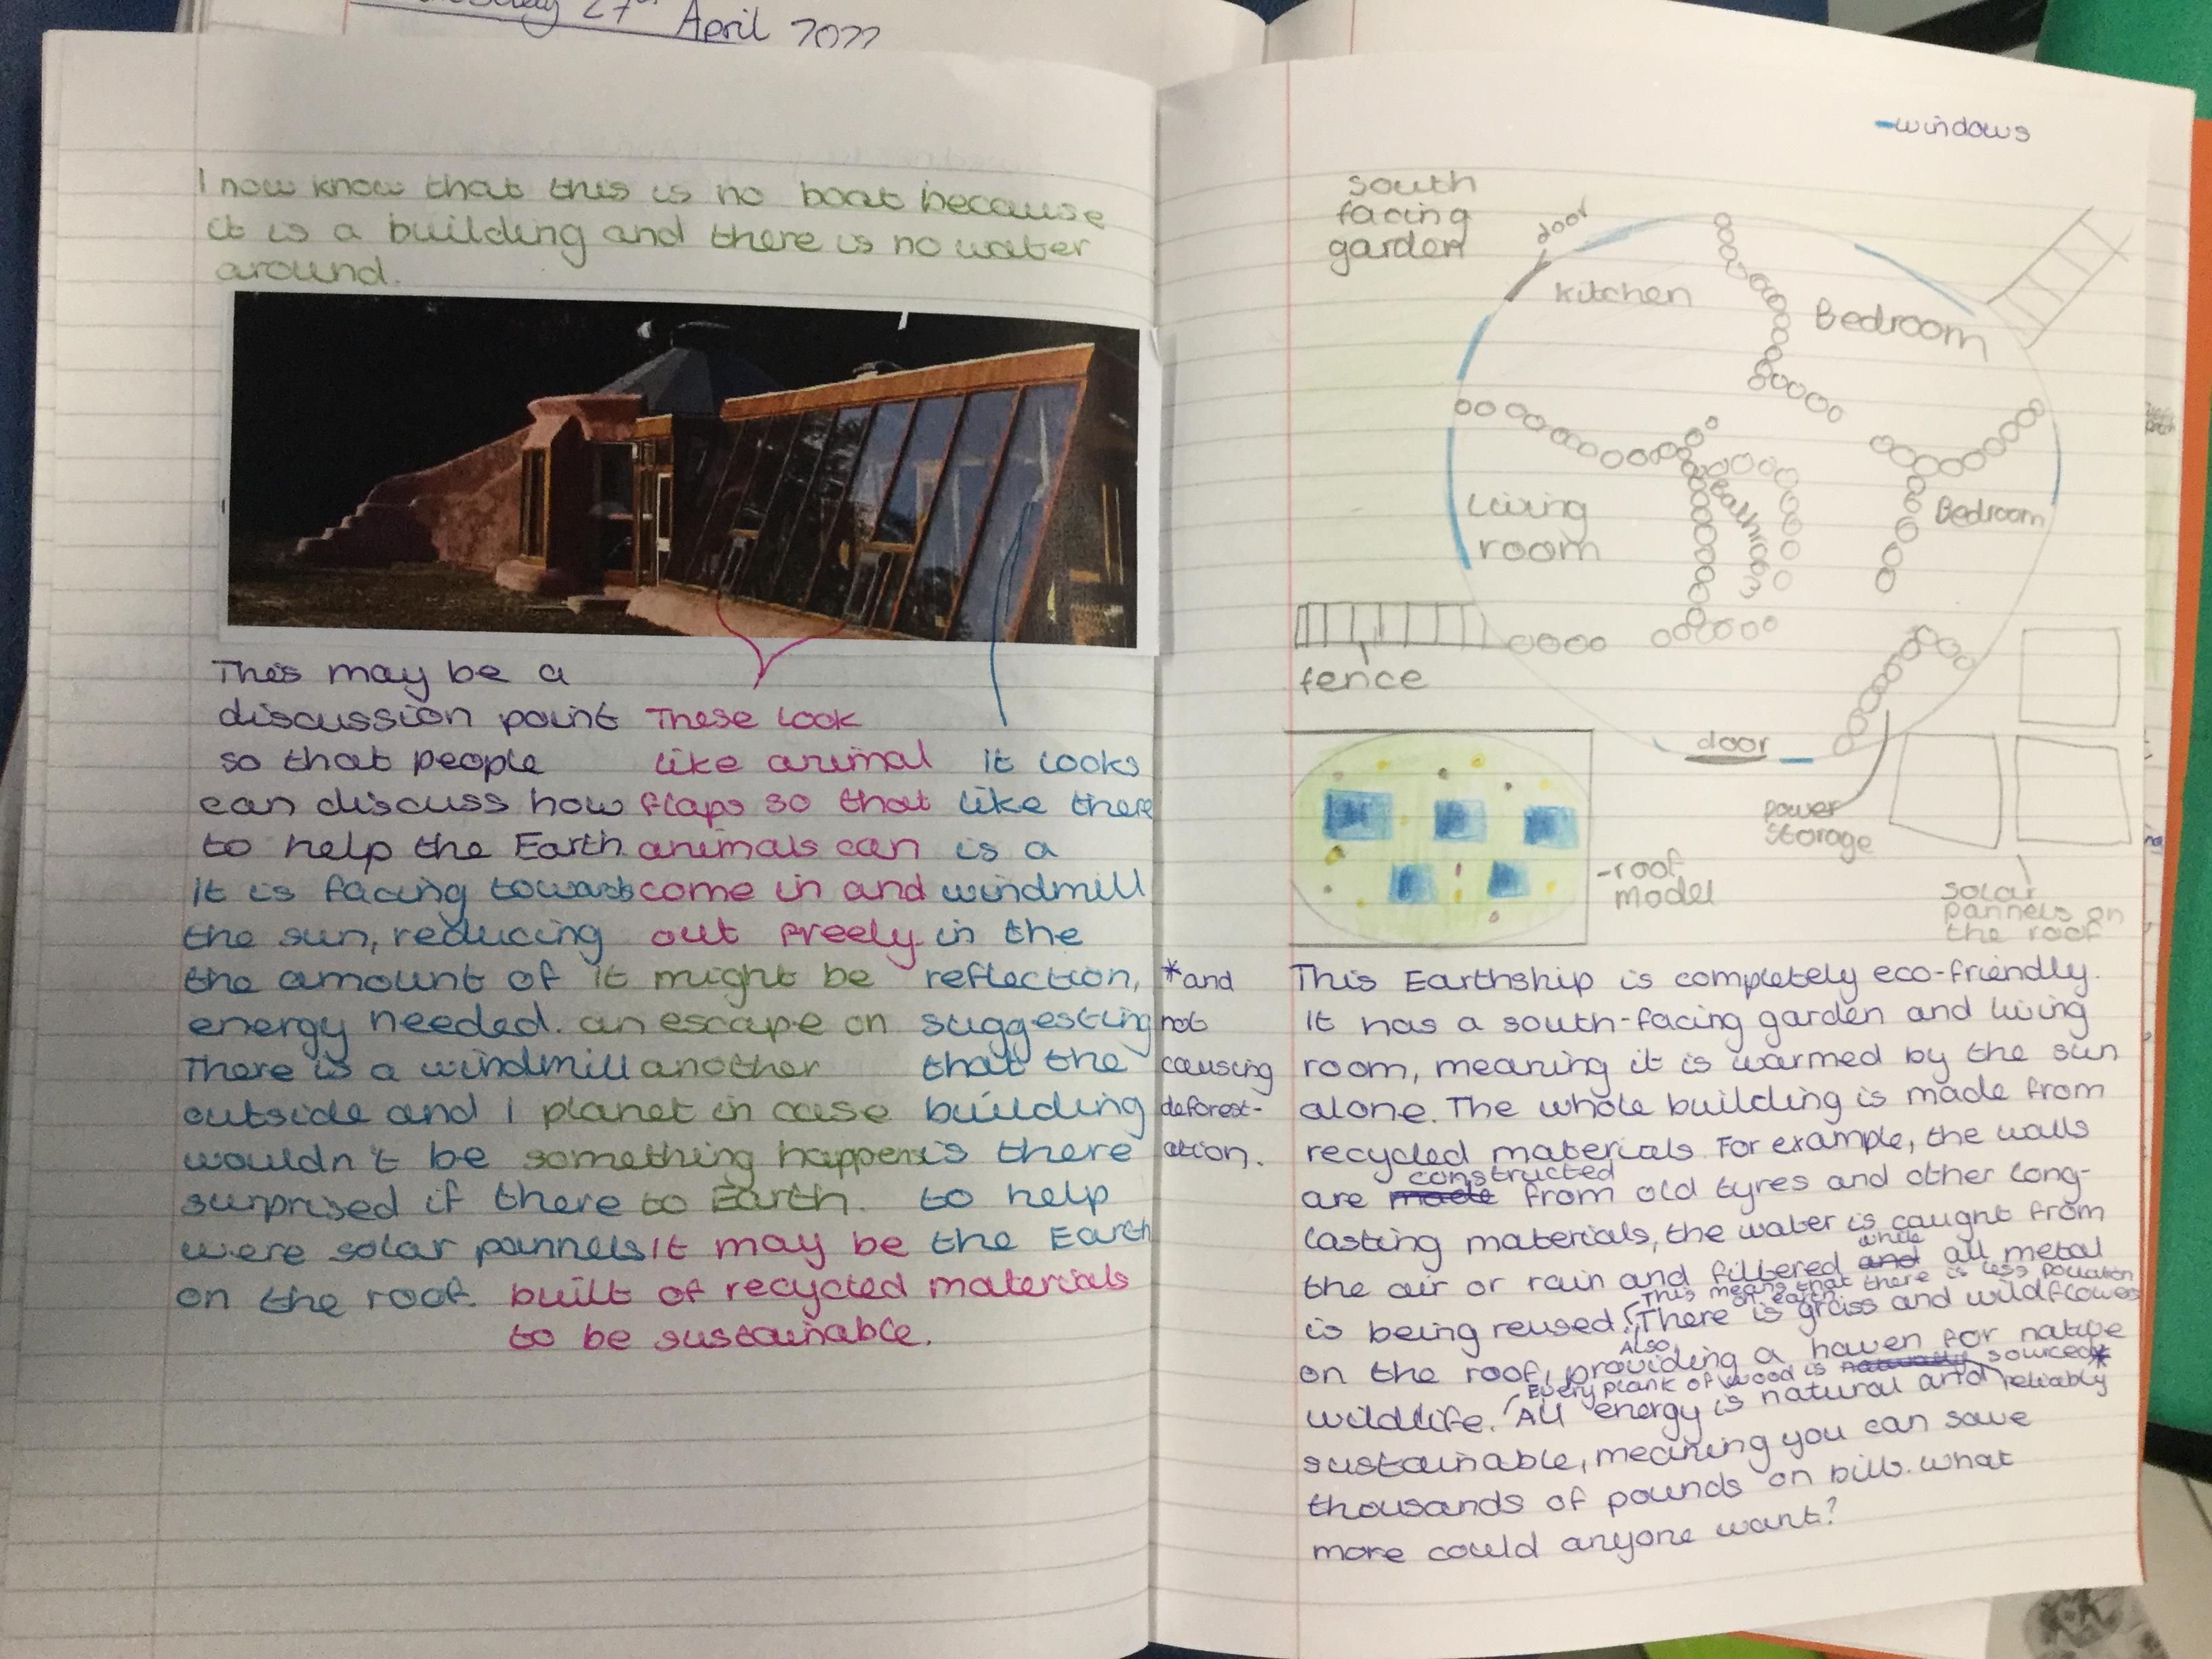 27th April 2022
I now know that this is no boat because
it is a building and there is no water
around.
This may be a
discussion point
so that people
can discuss how
to help the Earth
it is facing towards
the sun, reducing
the amount of
energy needed.
There is a windmill
outside and I
wouldn't be
surprised if there
were solar pannels
on the roof.
These look
like animal
flaps so that
animals can
come in and
out freely.
it might be
an escape on
another
planet in case
something happens
to Earth.
It may be
built of recycled materials
to be sustainable.
it looks
like there
is a
windmill
in the
reflection,
suggesting
that the
building
is there
to help
the Earth
-windows
south
facing
garden
door
Kitchen
Bedroom
Living
room
Bathroom
Bedroom
fence
door
power
storage
-roof
model
solar
pannels on
the roof
*and
not
causing
deforest-
ation.
This Earthship is completely eco-friendly.
It has a south-facing garden and living
room, meaning it is warmed by the sun
alone. The whole building is made from
recycled materials. For example, the walls
constructed
are made from old tyres and other long-
lasting materials, the water is caught from
while
the air or rain and filtered and all metal
This means that there is less pollution
on earth.
is being reused. There is grass and wildflowers
Also,
on the roof, providing a haven for native
Every plank of wood is naturally sourced*
reliably
wildlife. All energy is natural and
sustainable, meaning you can save
thousands of pounds on bills. What
more could anyone want?